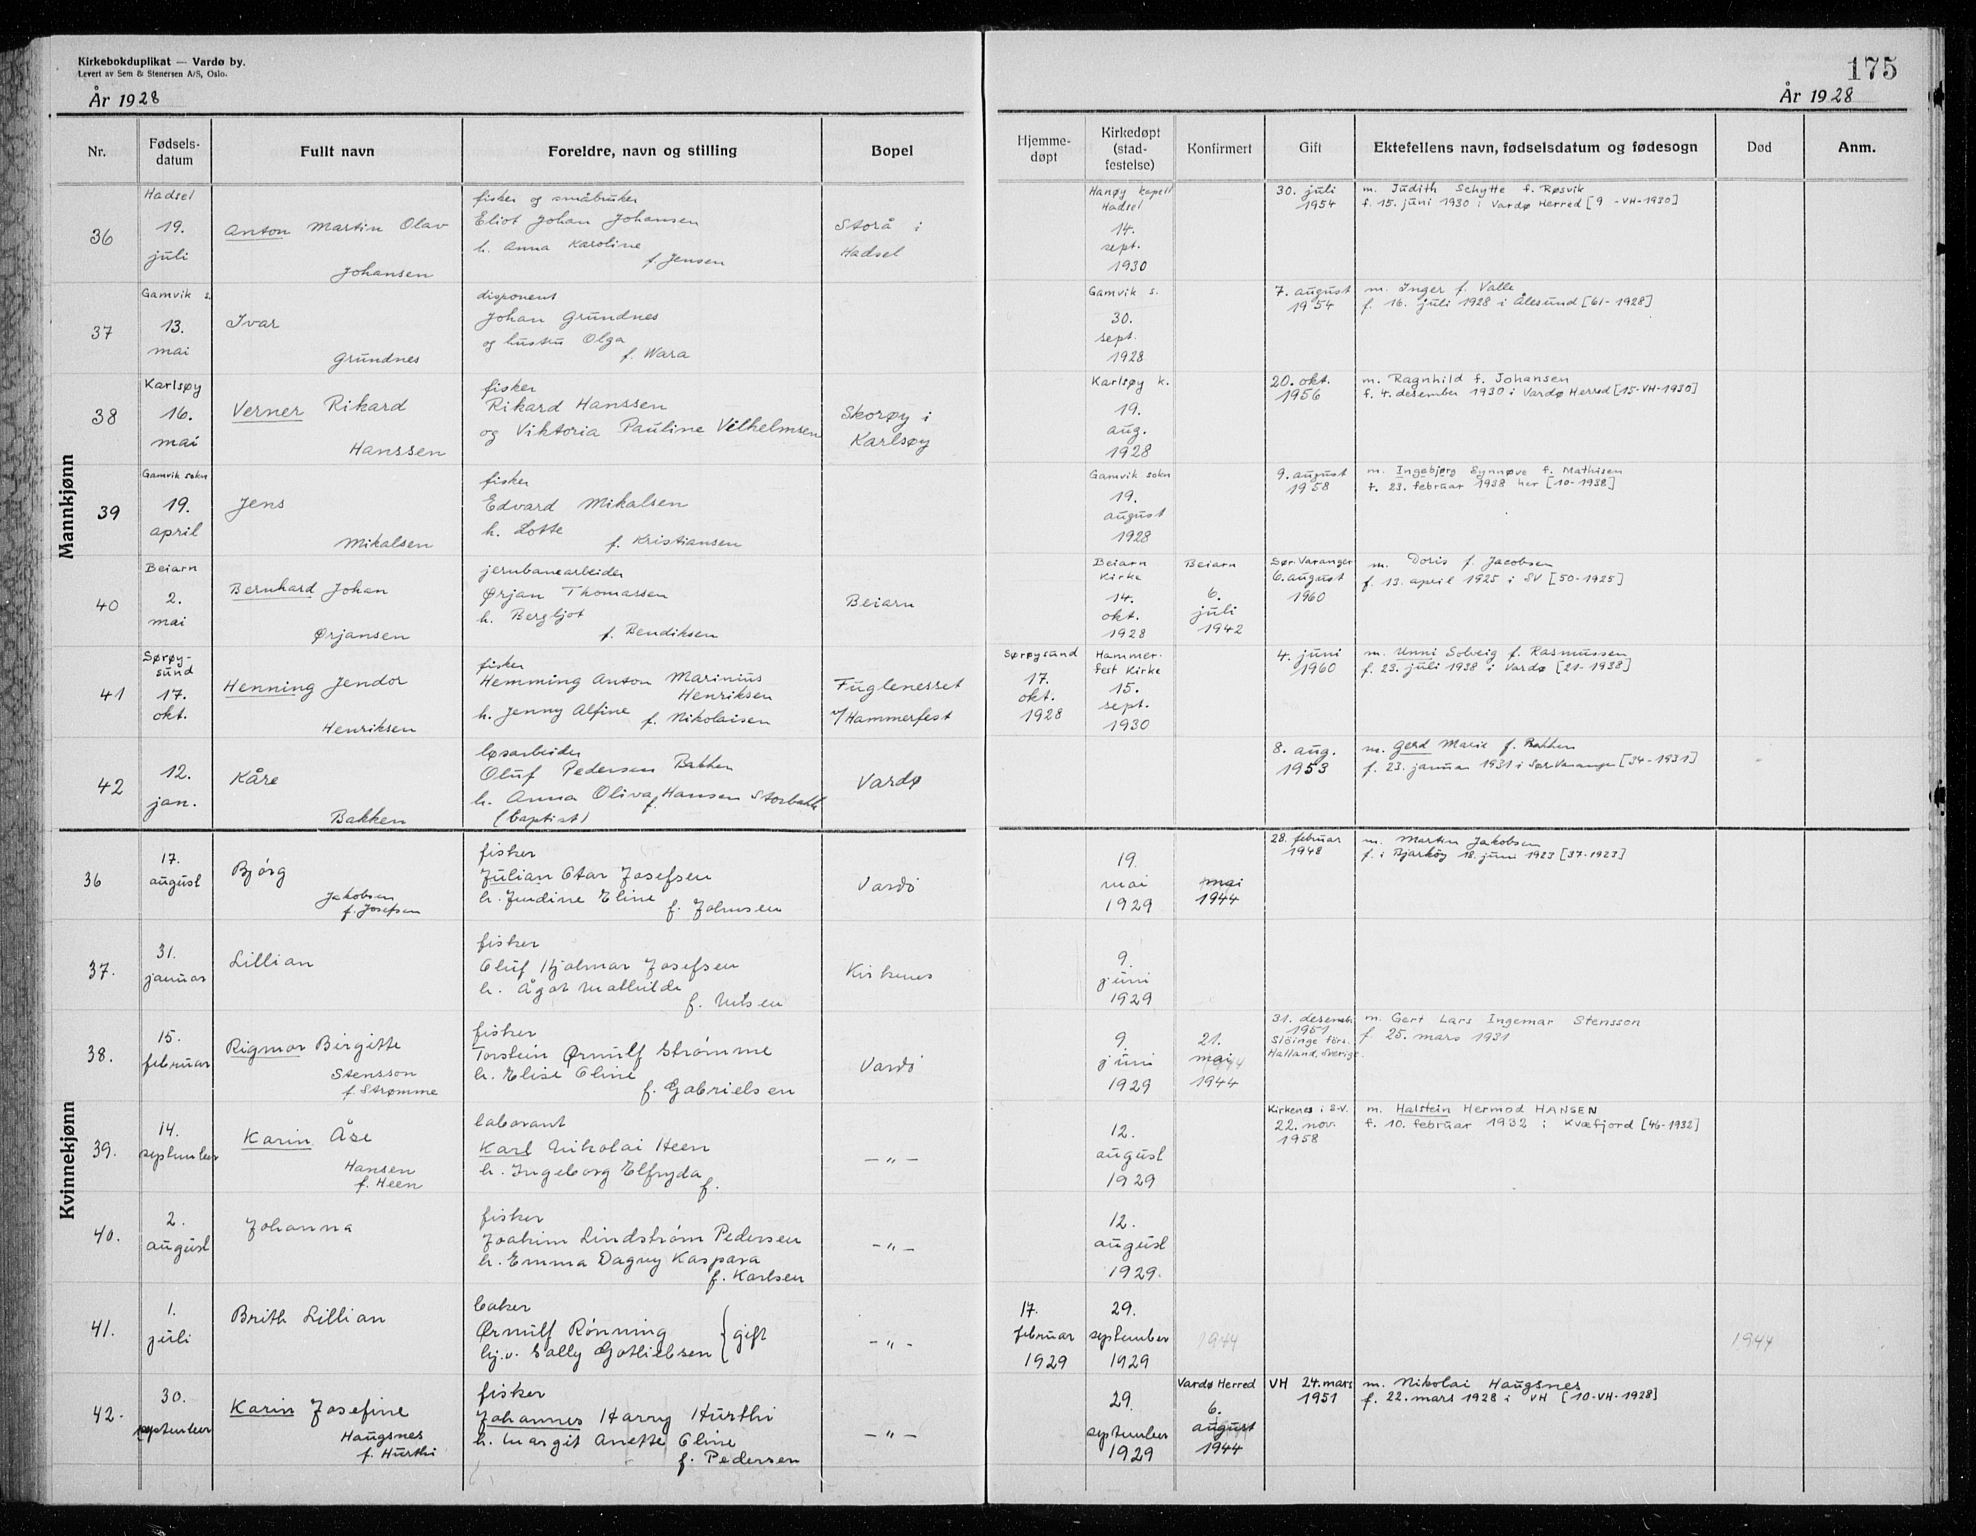 Kirkebokduplikat — Vardø by.
Levert av Sem & Stenersen A/S, Oslo.
År 1928
175
År 1928
Nr.
Fødsels-
datum
Fullt navn
Foreldre, navn og stilling
Bopel
Hjemme-
døpt
Kirkedøpt
(stad-
festelse)
Konfirmert
Gift
Ektefellens navn, fødselsdatum og fødesogn
Død
Anm.
Mannkjønn
36
Hadsel
19.
juli
Anton Martin Olav
Johansen
fisker og småbruker
Eliot Johan Johansen
h. Anna Karoline
f. Jensen
Storå i
Hadsel
Hanøy kapell
Hadsel
14.
sept.
1930
30. juli
1954
m. Judith Schytte f. Røsvik
f. 15. juni 1930 i Vardø Herred [9-VH-1930]
37
Gamvik s.
13.
mai
Ivar
Grundnes
disponent
Johan Grundnes
og hustru Olga
f. Wara
Gamvik s.
30.
sept.
1928
7. august
1954
m. Inger f. Valle
f. 16. juli 1928 i Ålesund [61-1928]
38
Karlsøy
16.
mai
Verner Rikard
Hanssen
fisker
Rikard Hanssen
og Viktoria Pauline Vilhelmsen
Skorøy i
Karlsøy
Karlsøy k.
19.
aug.
1928
20. okt.
1956
m. Ragnhild f. Johansen
f. 4. desember 1930 i Vardø Herred [15-VH-1930]
39
Gamvik sokn
19.
april
Jens
Mikalsen
fisker
Edvard Mikalsen
h. Lotte
f. Kristiansen
Gamvik sokn
19.
august
1928
9. august
1958
m. Ingebjørg Synnøve f. Mathisen
f. 23. februar 1938 her [10-1938]
40
Beiarn
2.
mai
Bernhard Johan
Ørjansen
jernbanearbeider
Ørjan Thomassen
h. Bergljot
f. Bendiksen
Beiarn
Beiarn
Kirke
14.
okt.
1928
Beiarn
6.
juli
1942
Sør-Varanger
6. august
1960
m. Doris f. Jacobsen
f. 13. april 1925 i SV [50-1925]
41
Sørøy-
sund
17.
okt.
Henning Jendor
Henriksen
fisker
Hemming Anton Marinius
Henriksen
h. Jenny Alfine f. Nikolaisen
Fuglenesset
v/Hammerfest
Sørøysund
17.
okt.
1928
Hammer-
fest Kirke
15.
sept.
1930
4. juni
1960
m. Unni Solveig f. Rasmussen
f. 23. juli 1938 i Vardø [21-1938]
42
12.
jan.
Kåre
Bakken
løsarbeider
Oluf Pedersen Bakken
h. Anna Oliva f. Hansen Storbakk
(baptist)
Vardø
8. aug.
1953
m. Gerd Marie f. Bakken
f. 23. januar 1931 i Sør Varanger [34-1931]
Kvinnekjønn
36
17.
august
Bjørg
Jakobsen
f. Josefsen
fisker
Julian Otar Josefsen
h. Jendine Eline
f. Johnsen
Vardø
19.
mai
1929
mai
1944
28. februar
1948
m. Martin Jakobsen
f. i Bjarkøy 18. juni 1923 [37-1923]
37.
31.
januar
Lillian
fisker
Oluf Hjalmar Josefsen
h. Ågot Mathilde
f. Nilsen
Kirkenes
9.
juni
1929
38.
15.
februar
Rigmor Birgitte
Stensson
f. Strømme
fisker
Torstein Ørnulf Strømme
h. Elise Oline
f. Gabrielsen
Vardø
9.
juni
1929
21.
mai
1944
31. desemb.
1951
Slöinge förs.
Halland, Sverige
m. Gert Lars Ingemar Stensson
f. 25. mars 1931
39.
14.
september
Karin Åse
Hansen
f. Heen
laborant
Karl Nikolai Heen
h. Ingeborg Elfryda
f.
— „ —
12.
august
1929
Kirkenes i S-V.
22. nov.
1958
m. Halstein Hermod HANSEN
f. 10. februar 1932 i Kvæfjord [46-1932]
40.
2.
august
Johanna
fisker
Joakim Lindstrøm Pedersen
h. Emma Dagny Kaspara
f. Karlsen
— „ —
12.
august
1929.
41.
1.
juli
Brith Lillian
baker
Ørnulf Rønning
hj.v. Sally Gotliebsen } gift
— „ —
17.
februar
1929
29.
september
1929
1944
1944
42.
30.
september
Karin Josefine
Haugsnes
f. Hurthi
fisker
Johannes Harry Hurthi
h. Margit Anette Oline
f. Pedersen
— „ —
29.
september
1929
Vardø Herred
6.
august
1944
VH 24. mars
1951
m. Nikolai Haugsnes
f. 22. mars 1928 i VH [10-VH-1928]